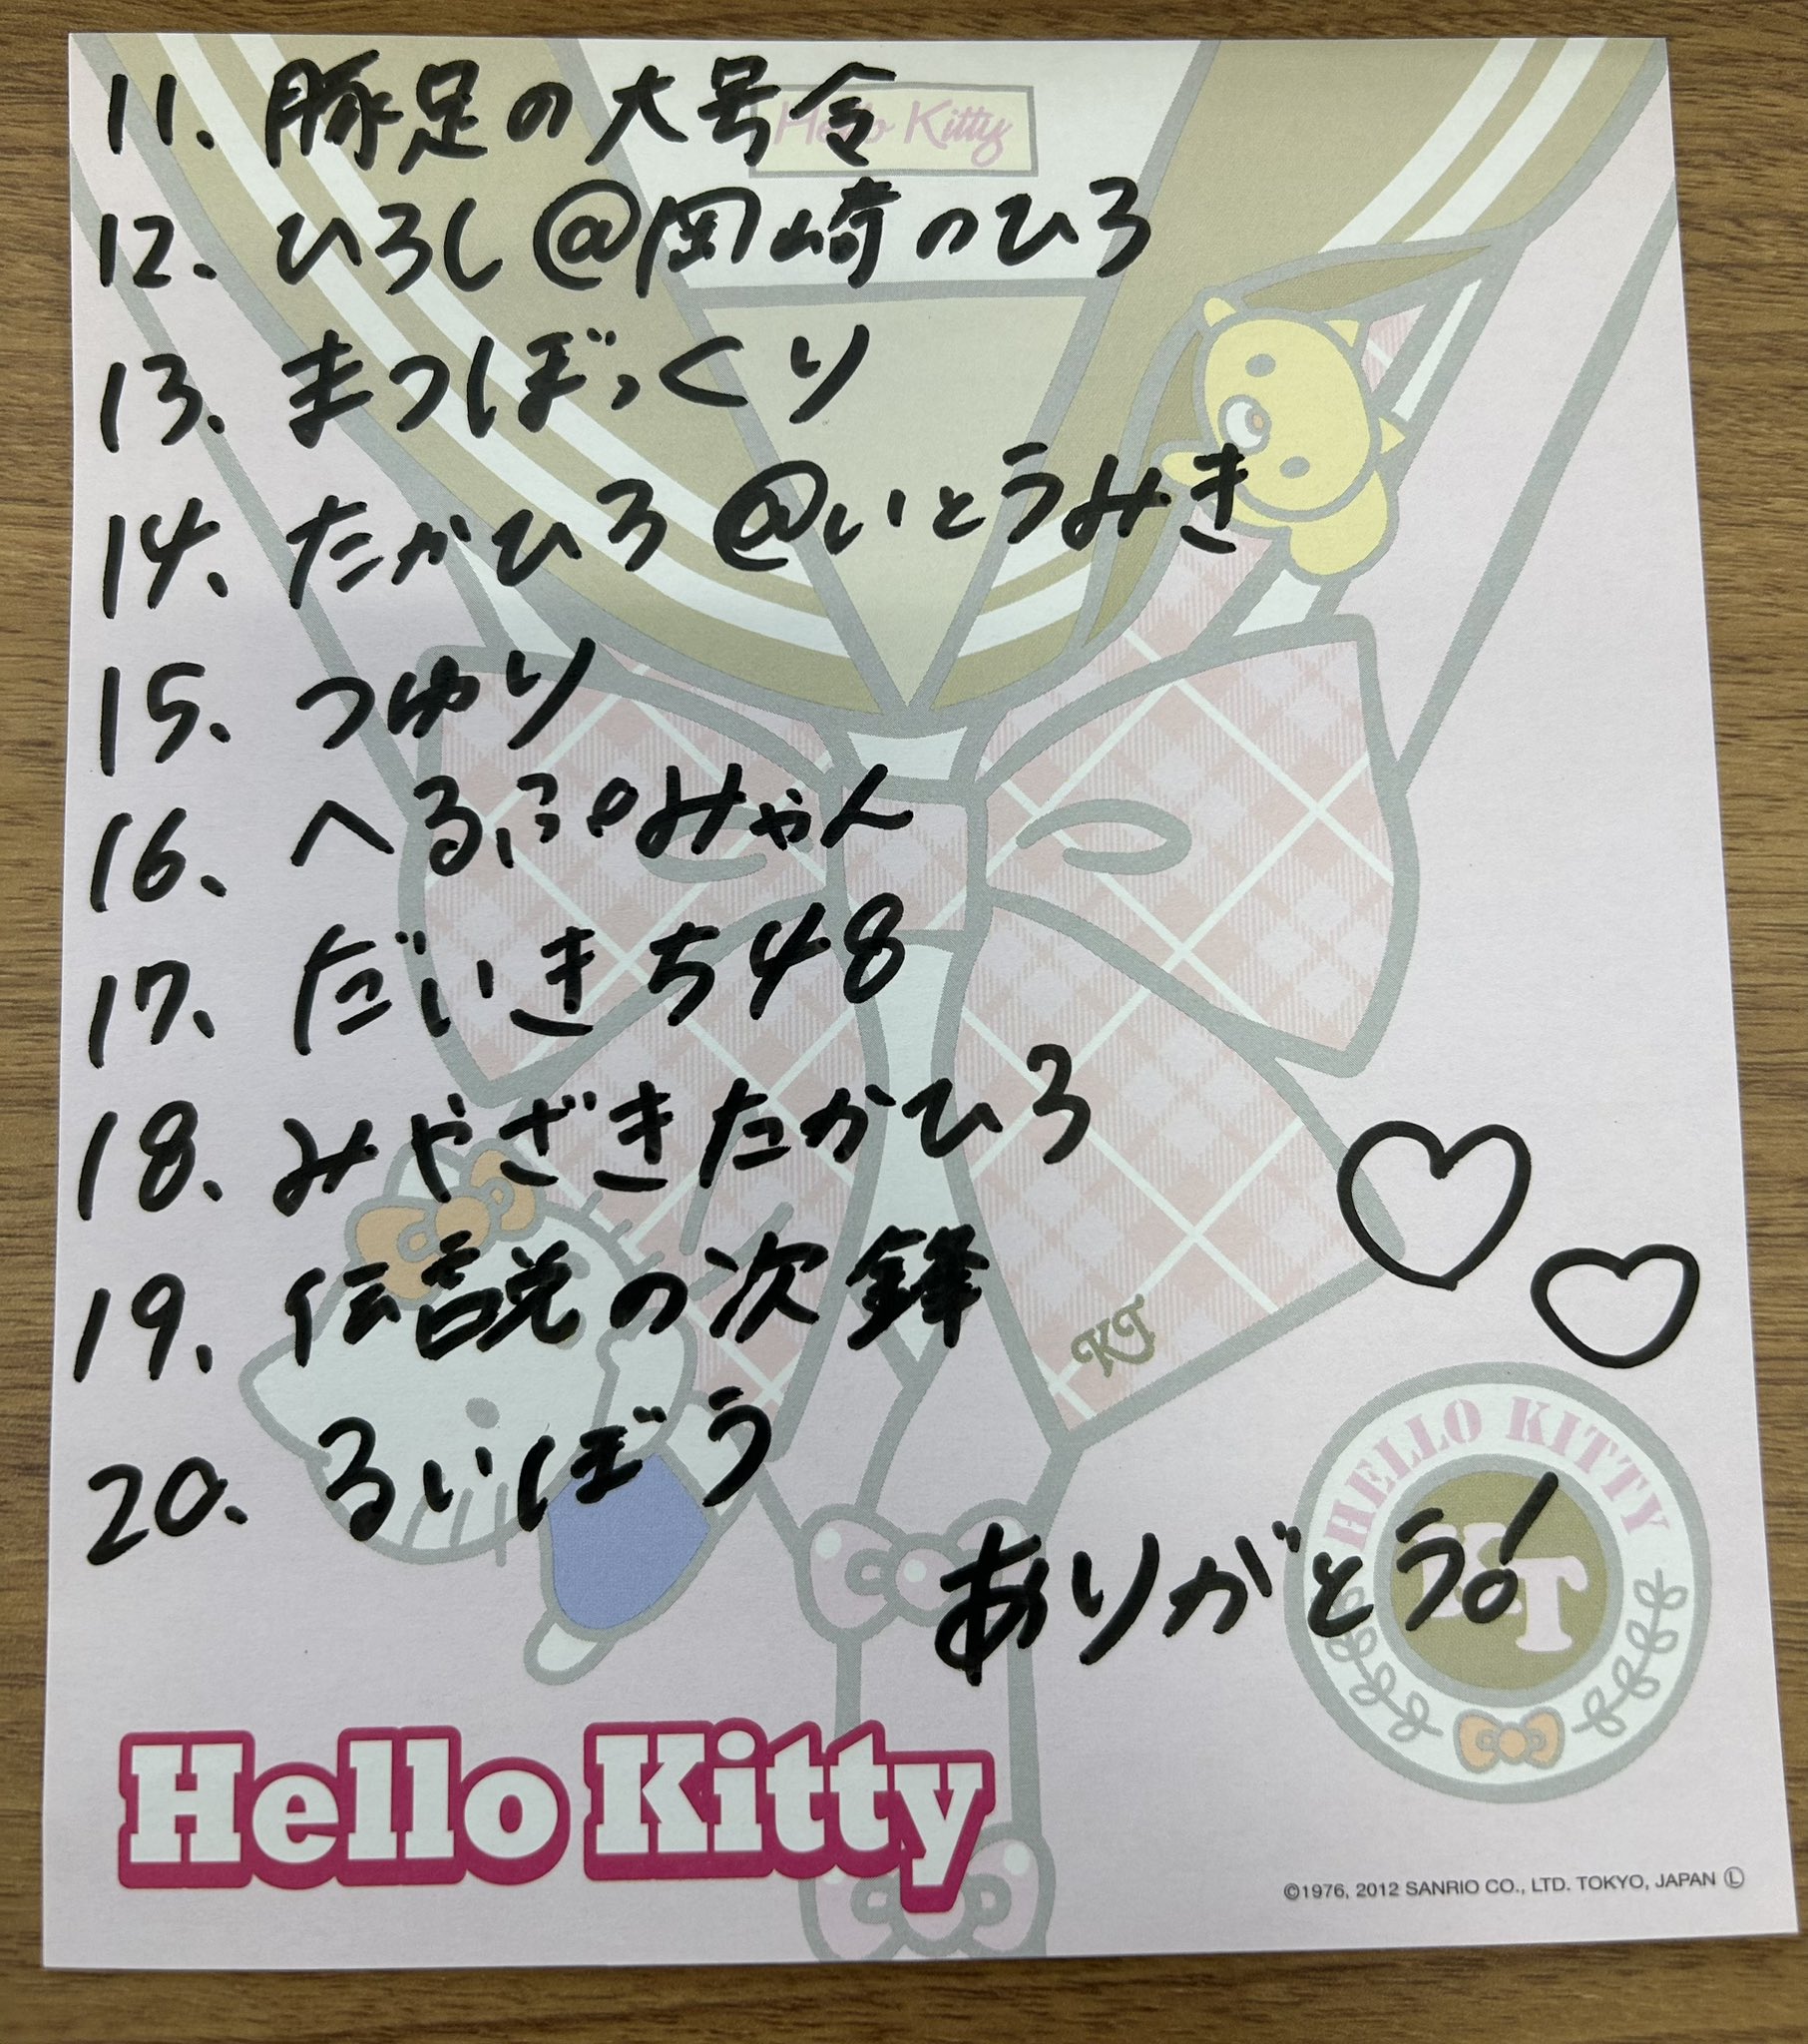 Hello Kitty
11. 豚足の大号令
12. ひろし@岡崎のひろ
13. まつぼっくり
14. たかひろ@いとうみき
15. つゆり
16. へるぷみゃん
17. だいきち48
18. みやざきたかひろ
19. 伝説の次鋒
20. るいぼう
ありがとう!
KT
HELLO KITTY
KT
Hello Kitty
©1976, 2012 SANRIO CO., LTD. TOKYO, JAPAN Ⓛ